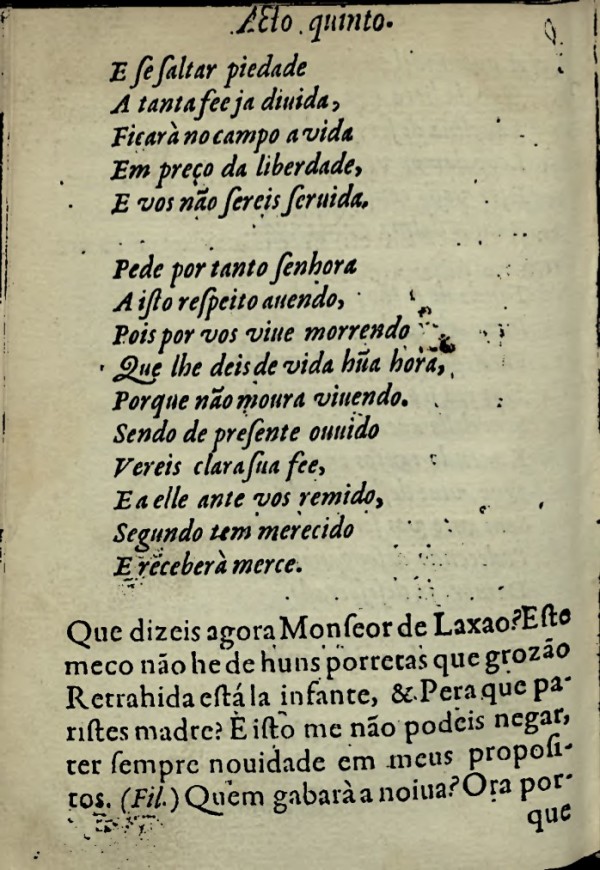 Acto quinto.
E se faltar piedade
A tanta fee ja diuida,
Ficarà no campo a vida
Em preço da liberdade,
E vos não sereis seruida.
Pede por tanto senhora
A isto respeito auendo,
Pois por vos viue morrendo
Que lhe deis de vida hũa hora,
Porque não moura viuendo.
Sendo de presente ouuido
Vereis clara sua fee,
E a elle ante vos remido,
Segundo tem merecido
E receberà merce.
Que dizeis agora Monseor de Laxao? Este
meco não he de huns porretas que grozão
Retrahida está la infante, & Pera que pa-
ristes madre? E isto me não podeis negar,
ter sempre nouidade em meus proposi-
tos. (Fil.) Quem gabarà a noiua? Ora por-
que